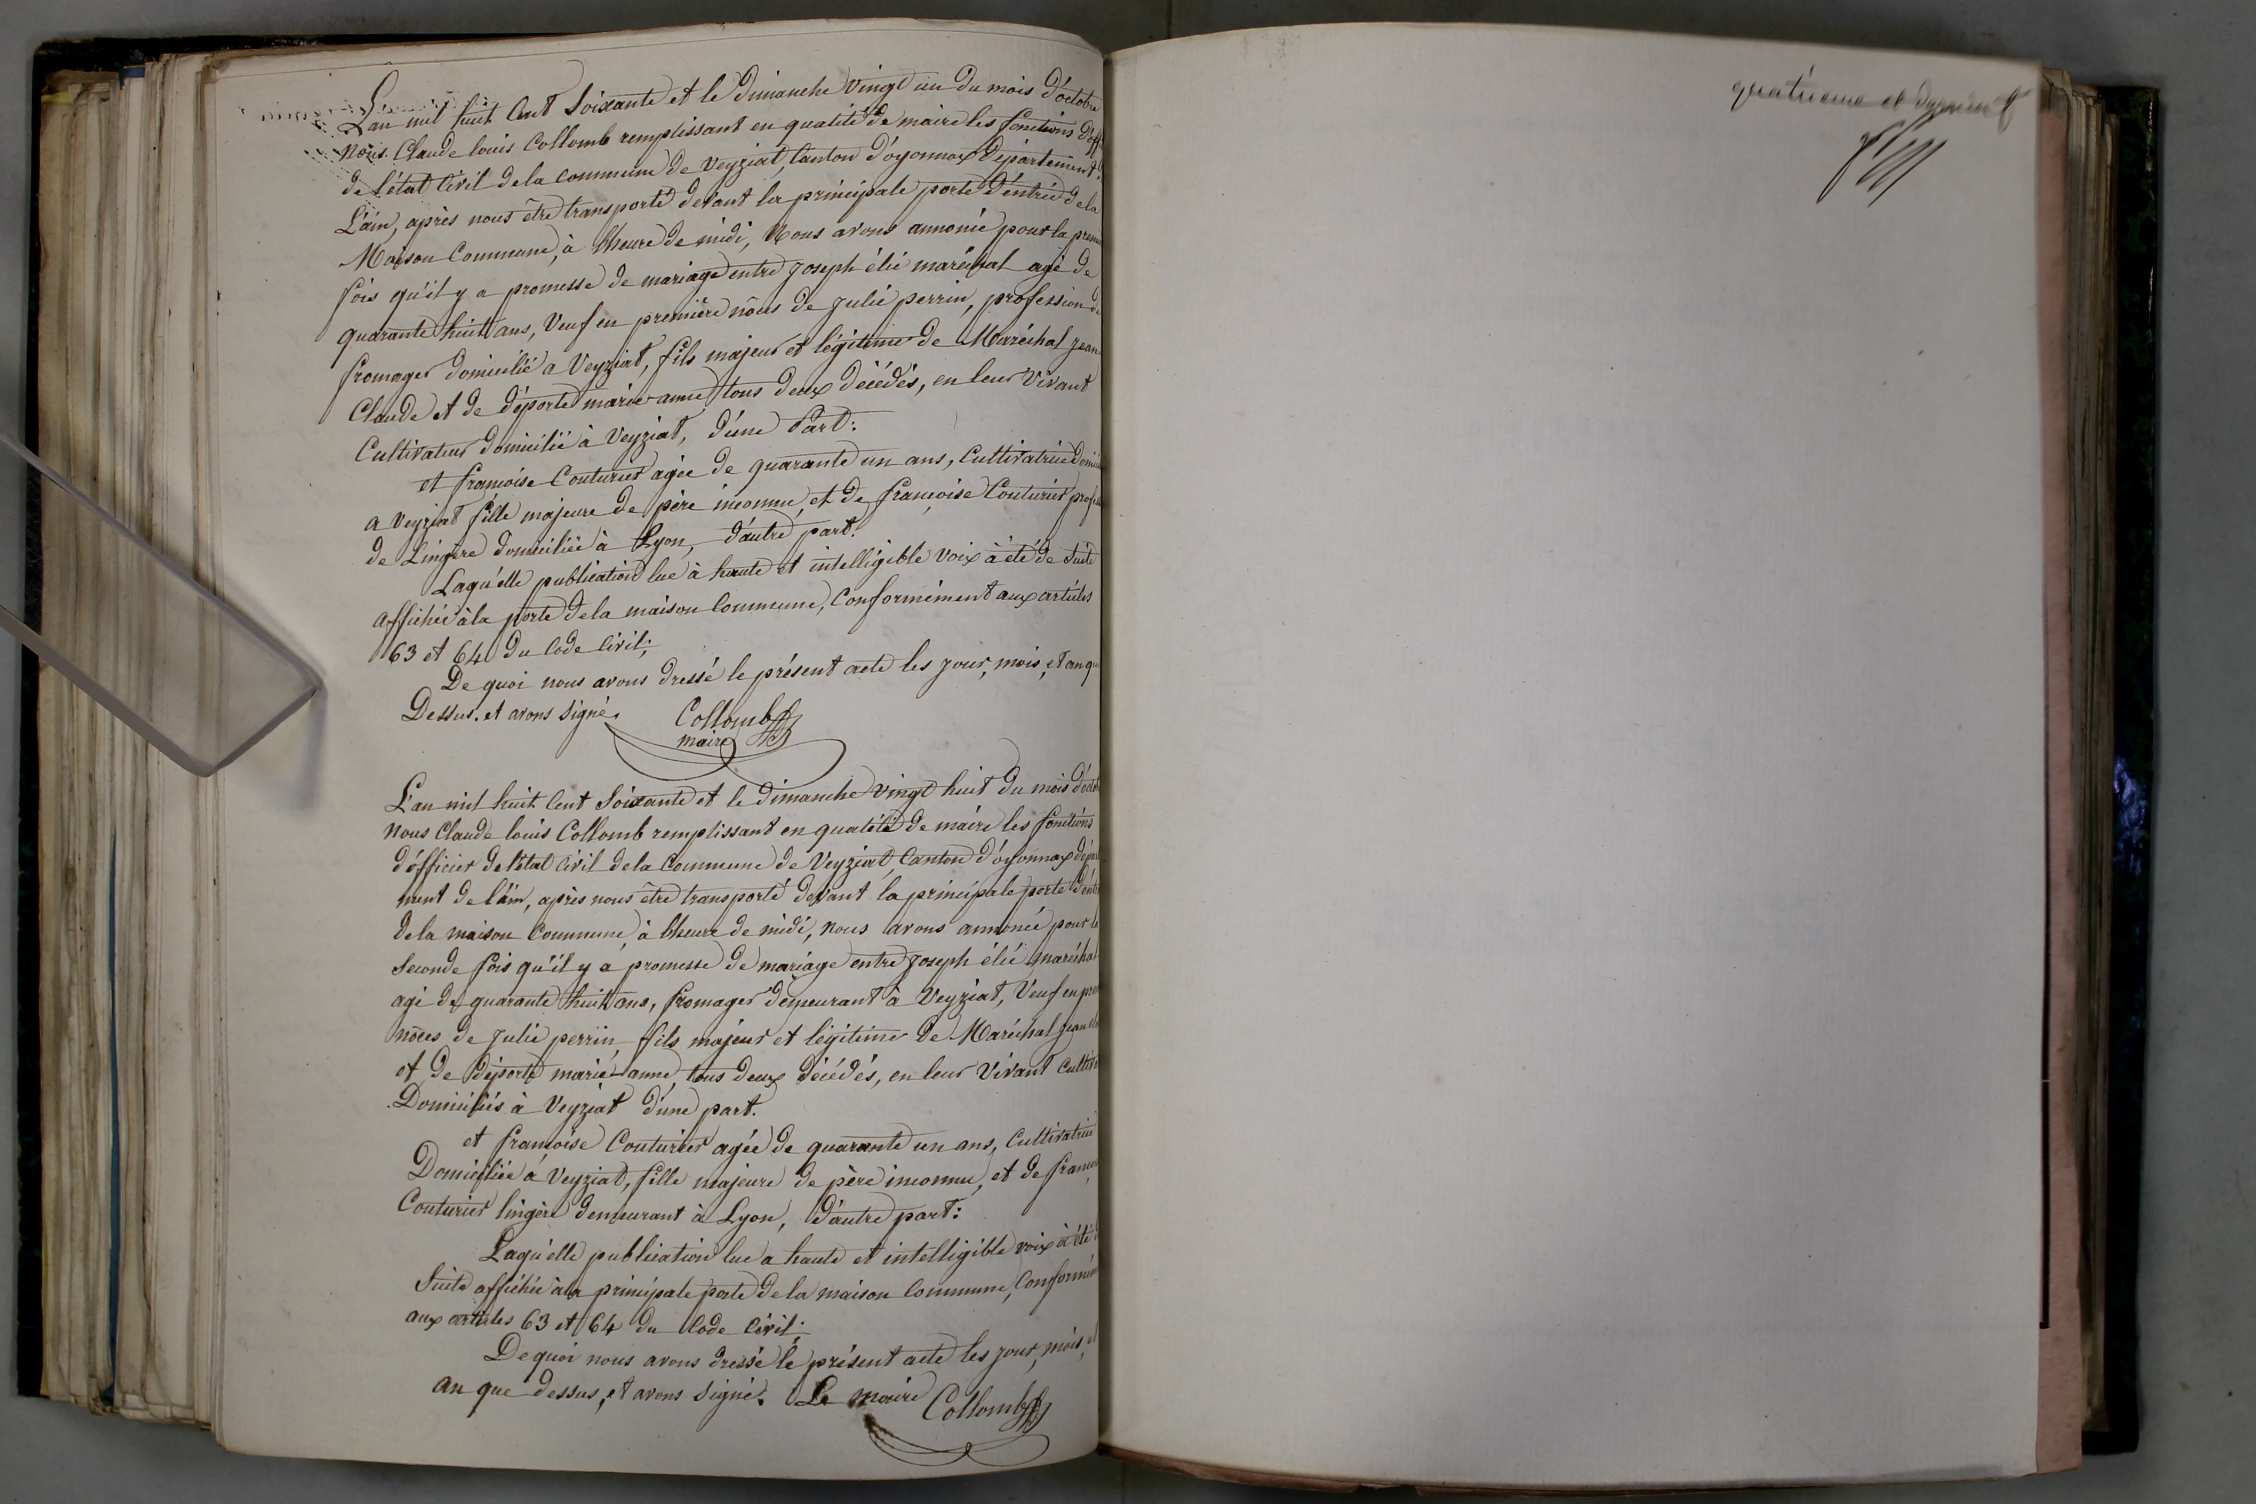 L'an mil huit Cent Soixante et le Dimanche vingt un du mois d'octobre
Nous Claude louis Collomb remplissant en qualité de maire les fonctions d'off
de l'état Civil de la commune de Veyziat, Canton d'oyonnax Département d
L'ain, après nous être transporté devant la principale porte d'éntrée de la
Maison Commune, à l'heure de midi, Nous avons annoncé pour la premi
fois qu'il y a promesse de mariage entre Joseph élie maréchal agé de
quarante huit ans, Veuf en première nôces de Julie perrin, profession de
fromager domicilié a Veyziat, fils majeur et légitime de Maréchal Jean
Claude et de déporte marie-anne tous deux décédés, en leur Vivant
Cultivateur domicilié à Veyziat, d'une Part:
et françoise Couturier agée de quarante un ans, Cultivatrice Domici
a Veyziat fille majeure de père inconnu, et de françoise Couturier profes
de Lingère domiciliée à Lyon, d'autre part.
Laquélle publication lue à haute et intelligible voix à été de Suite
affichée à la porte de la maison Commune, Conformément aux articles
63 et 64 du Code Civil;
De quoi nous avons dressé le présent acte les jour, mois, et an que
Dessus. et avons Signé. Collomb
maire
L'an mil huit Cent Soixante et le Dimanche vingt huit du mois d'octob
Nous Claude louis Collomb remplissant en qualité de maire les fonctions
d'officier de l'état Civil de la Commune de Veyziat, Canton d'oyonnax dépar
ment de l'ain, après nous être transporté devant la principale porte d'entr
de la maison Commune, à l'heure de midi, nous avons annoncé pour la
Seconde fois qu'il y a promesse de mariage entre Joseph élie maréchal
agé de quarante huit ans, fromager demeurant à Veyziat, Veuf en pre
nôces de Julie perrin, fils majeur et légitime de Maréchal Jean Cla
et de déporte marie-anne, tous deux décédés, en leur Vivant Cultiv
Domiciliés à Veyziat d'une part.
et françoise Couturier agée de quarante un ans, Cultivatrice
Domiciliée à Veyziat, fille majeure de père inconnu, et de françoi
Couturier lingère demeurant à Lyon, d'autre part:
Laquélle publication lue a haute et intelligible voix à été d
Suite affichée à la principale porte de la maison Commune, Conformém
aux articles 63 et 64 du Code Civil;
De quoi nous avons dressé le présent acte les jour, mois, et
an que dessus, et avons Signé. Le maire Collomb
quatrieme et dernier f